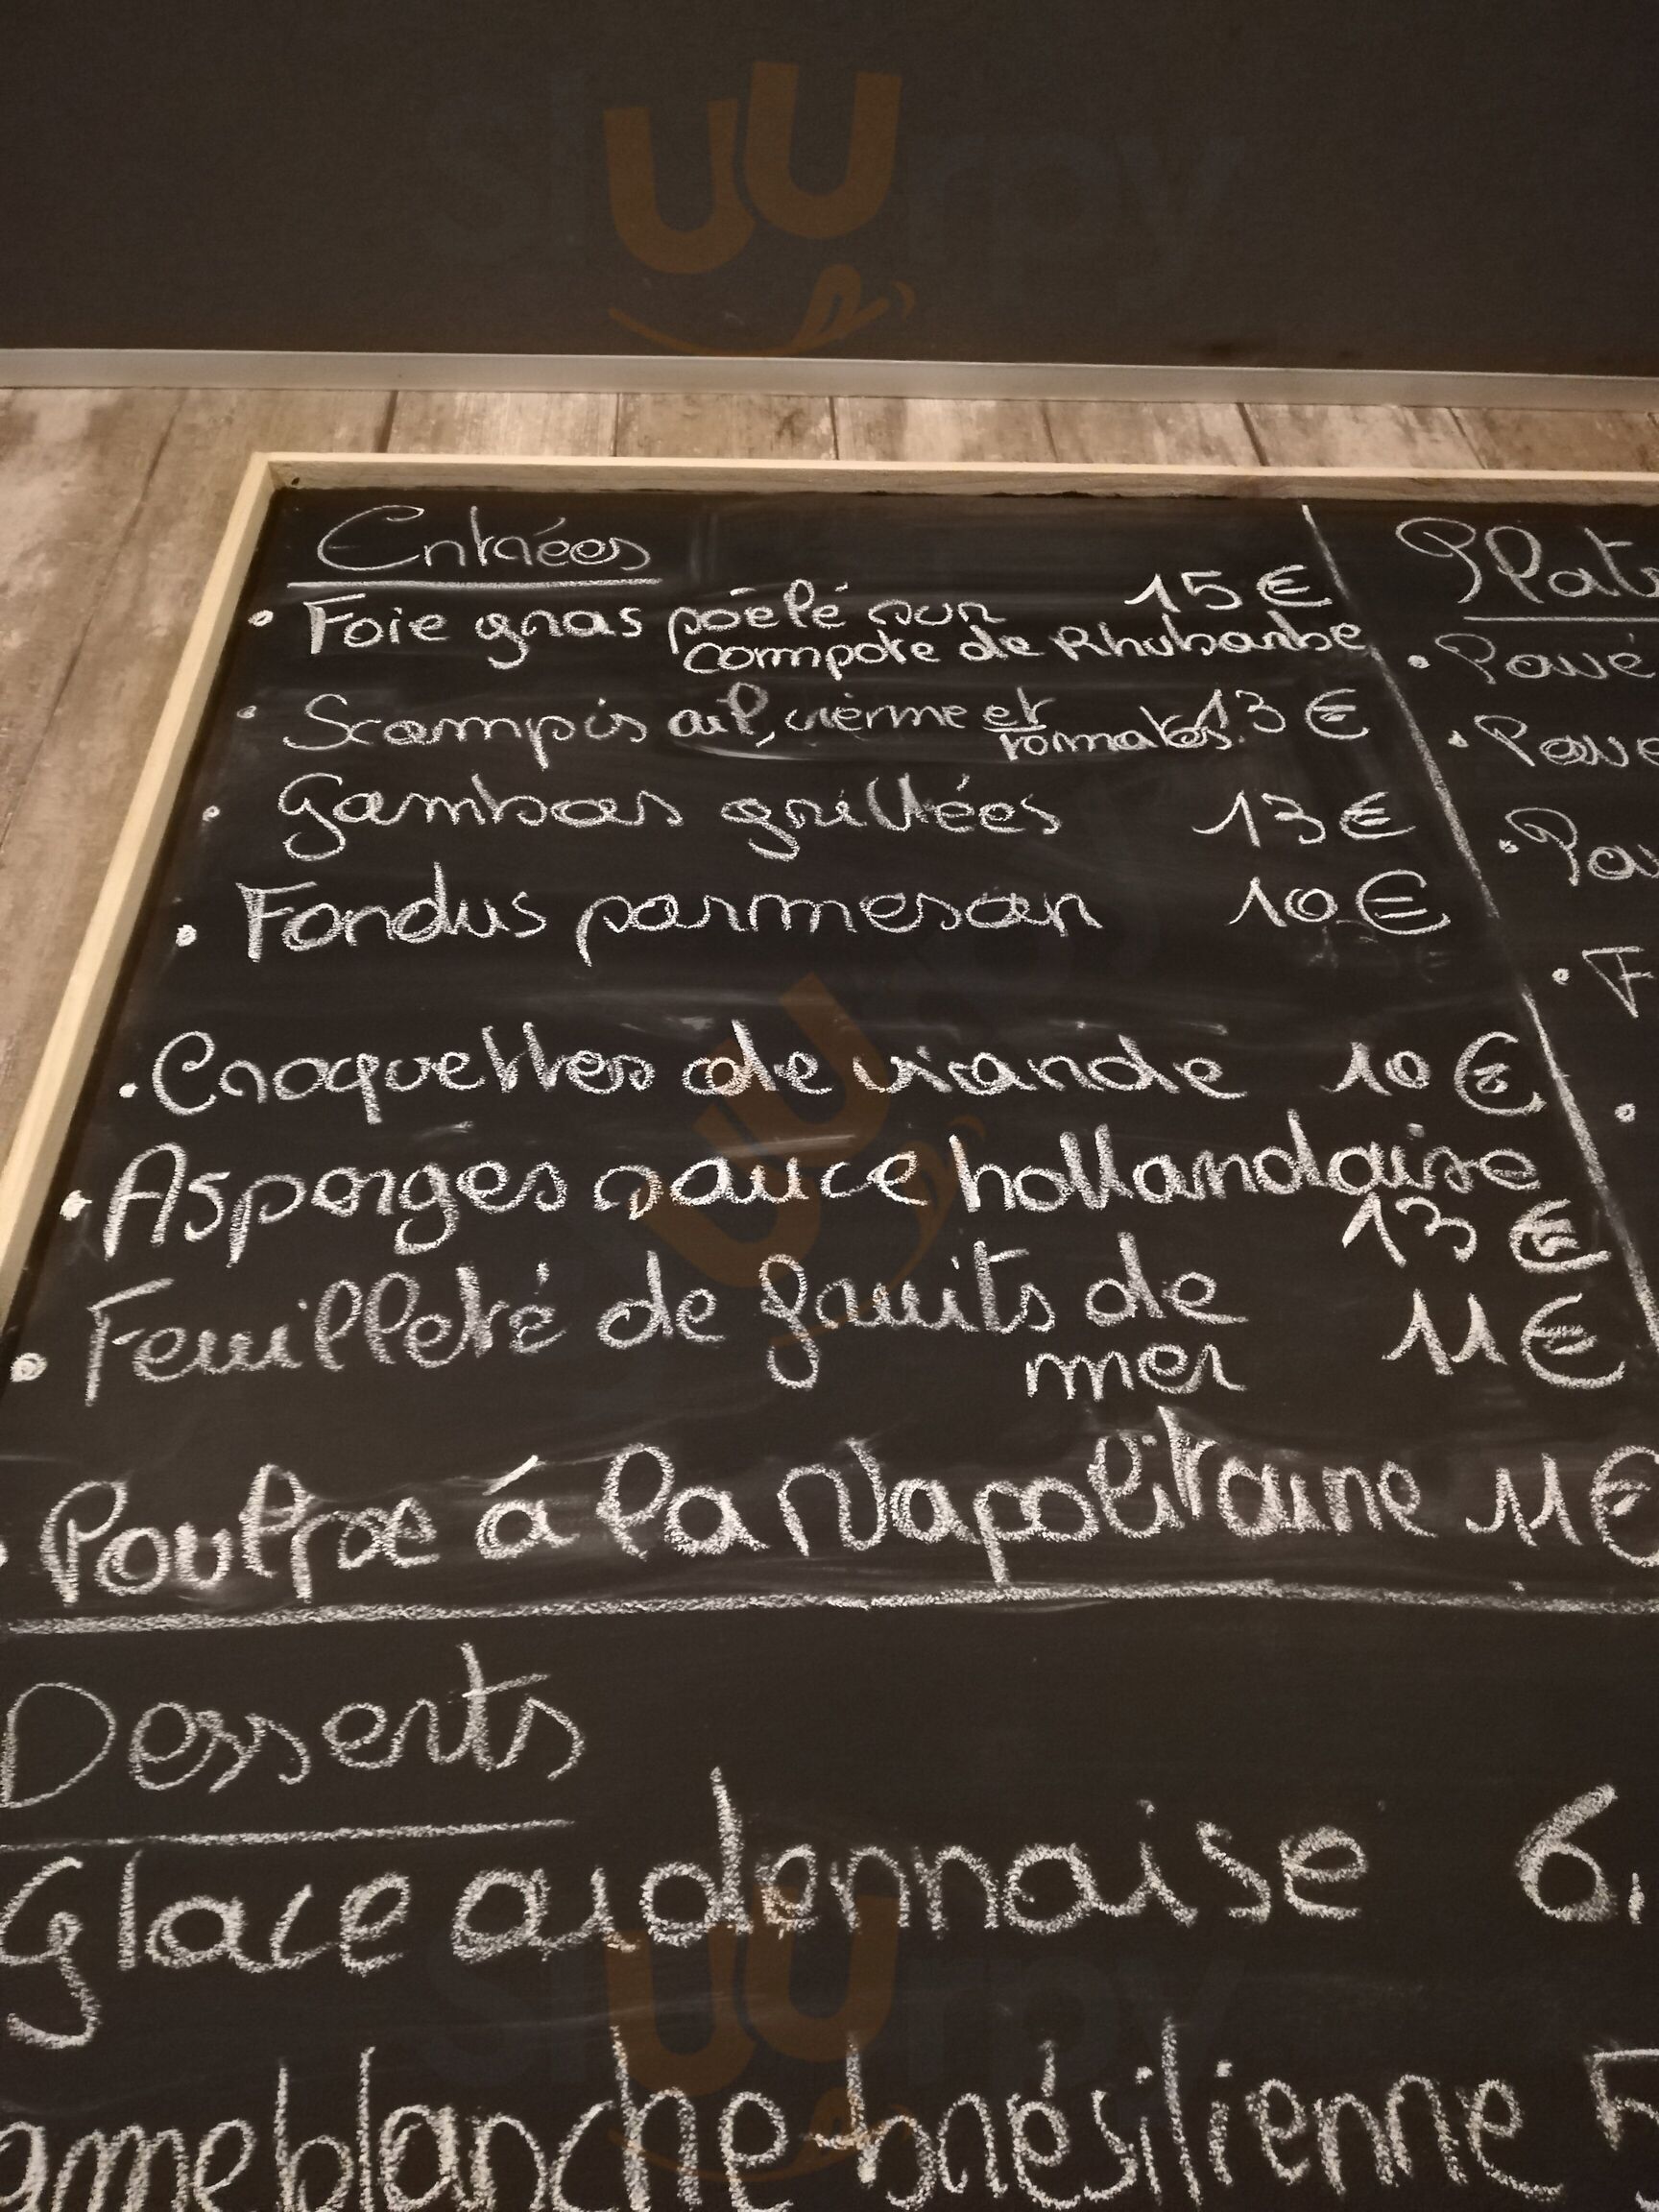 Entrées
• Foie gras poêlé sur 15€
compote de Rhubarbe
• Scampis ail, crème et 13€
tomates.
• Gambas grillées 13€
• Fondus parmesan 10€
• Croquettes de viande 10€
• Asperges sauce hollandaise
13€
• Feuilleté de fruits de 11€
mer
• Poulpe à la Napolitaine 11€
Plats
• Pavé
• Pavé
• Pav
• F
•
Desserts
Glace ardennaise 6,
ameblanche-brésilienne 5